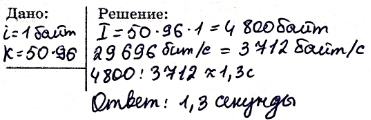 Дано:
i=1байт
K=50·96
Решение:
I=50·96·1=4 800байт
29 696 бит/с = 3 712 байт/с
4800:3712≈1,3с
Ответ: 1,3 секунды